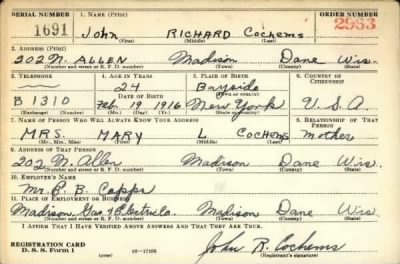 SERIAL NUMBER 1. NAME (Print) ORDER NUMBER
1691 John RICHARD Cochems 2983
(First) (Middle) (Last)
2. ADDRESS (Print)
202 N. ALLEN Madison Dane Wis.
(Number and street or R. F. D. number) (Town) (County) (State)
3. TELEPHONE 4. AGE IN YEARS 5. PLACE OF BIRTH 6. COUNTRY OF CITIZENSHIP
24 Bayside
DATE OF BIRTH (Town or county)
B 1310 Feb. 19 1916 New York U.S.A.
(Mo.) (Day) (Yr.) (State or country)
7. NAME OF PERSON WHO WILL ALWAYS KNOW YOUR ADDRESS 8. RELATIONSHIP OF THAT PERSON
MRS. MARY L COCHEMS Mother
(Mr., Mrs., Miss) (First) (Middle) (Last)
9. ADDRESS OF THAT PERSON
202 N. Allen Madison Dane Wis.
(Number and street or R. F. D. number) (Town) (County) (State)
10. EMPLOYER'S NAME
Mr. B. Capps
11. PLACE OF EMPLOYMENT OR BUSINESS
Madison Gas & Electric Co. Madison Dane Wis.
(Number and street or R. F. D. number) (Town) (County) (State)
I AFFIRM THAT I HAVE VERIFIED ABOVE ANSWERS AND THAT THEY ARE TRUE.
REGISTRATION CARD John R. Cochems
D. S. S. Form 1 (over) 16—17105 (Registrant's signature)